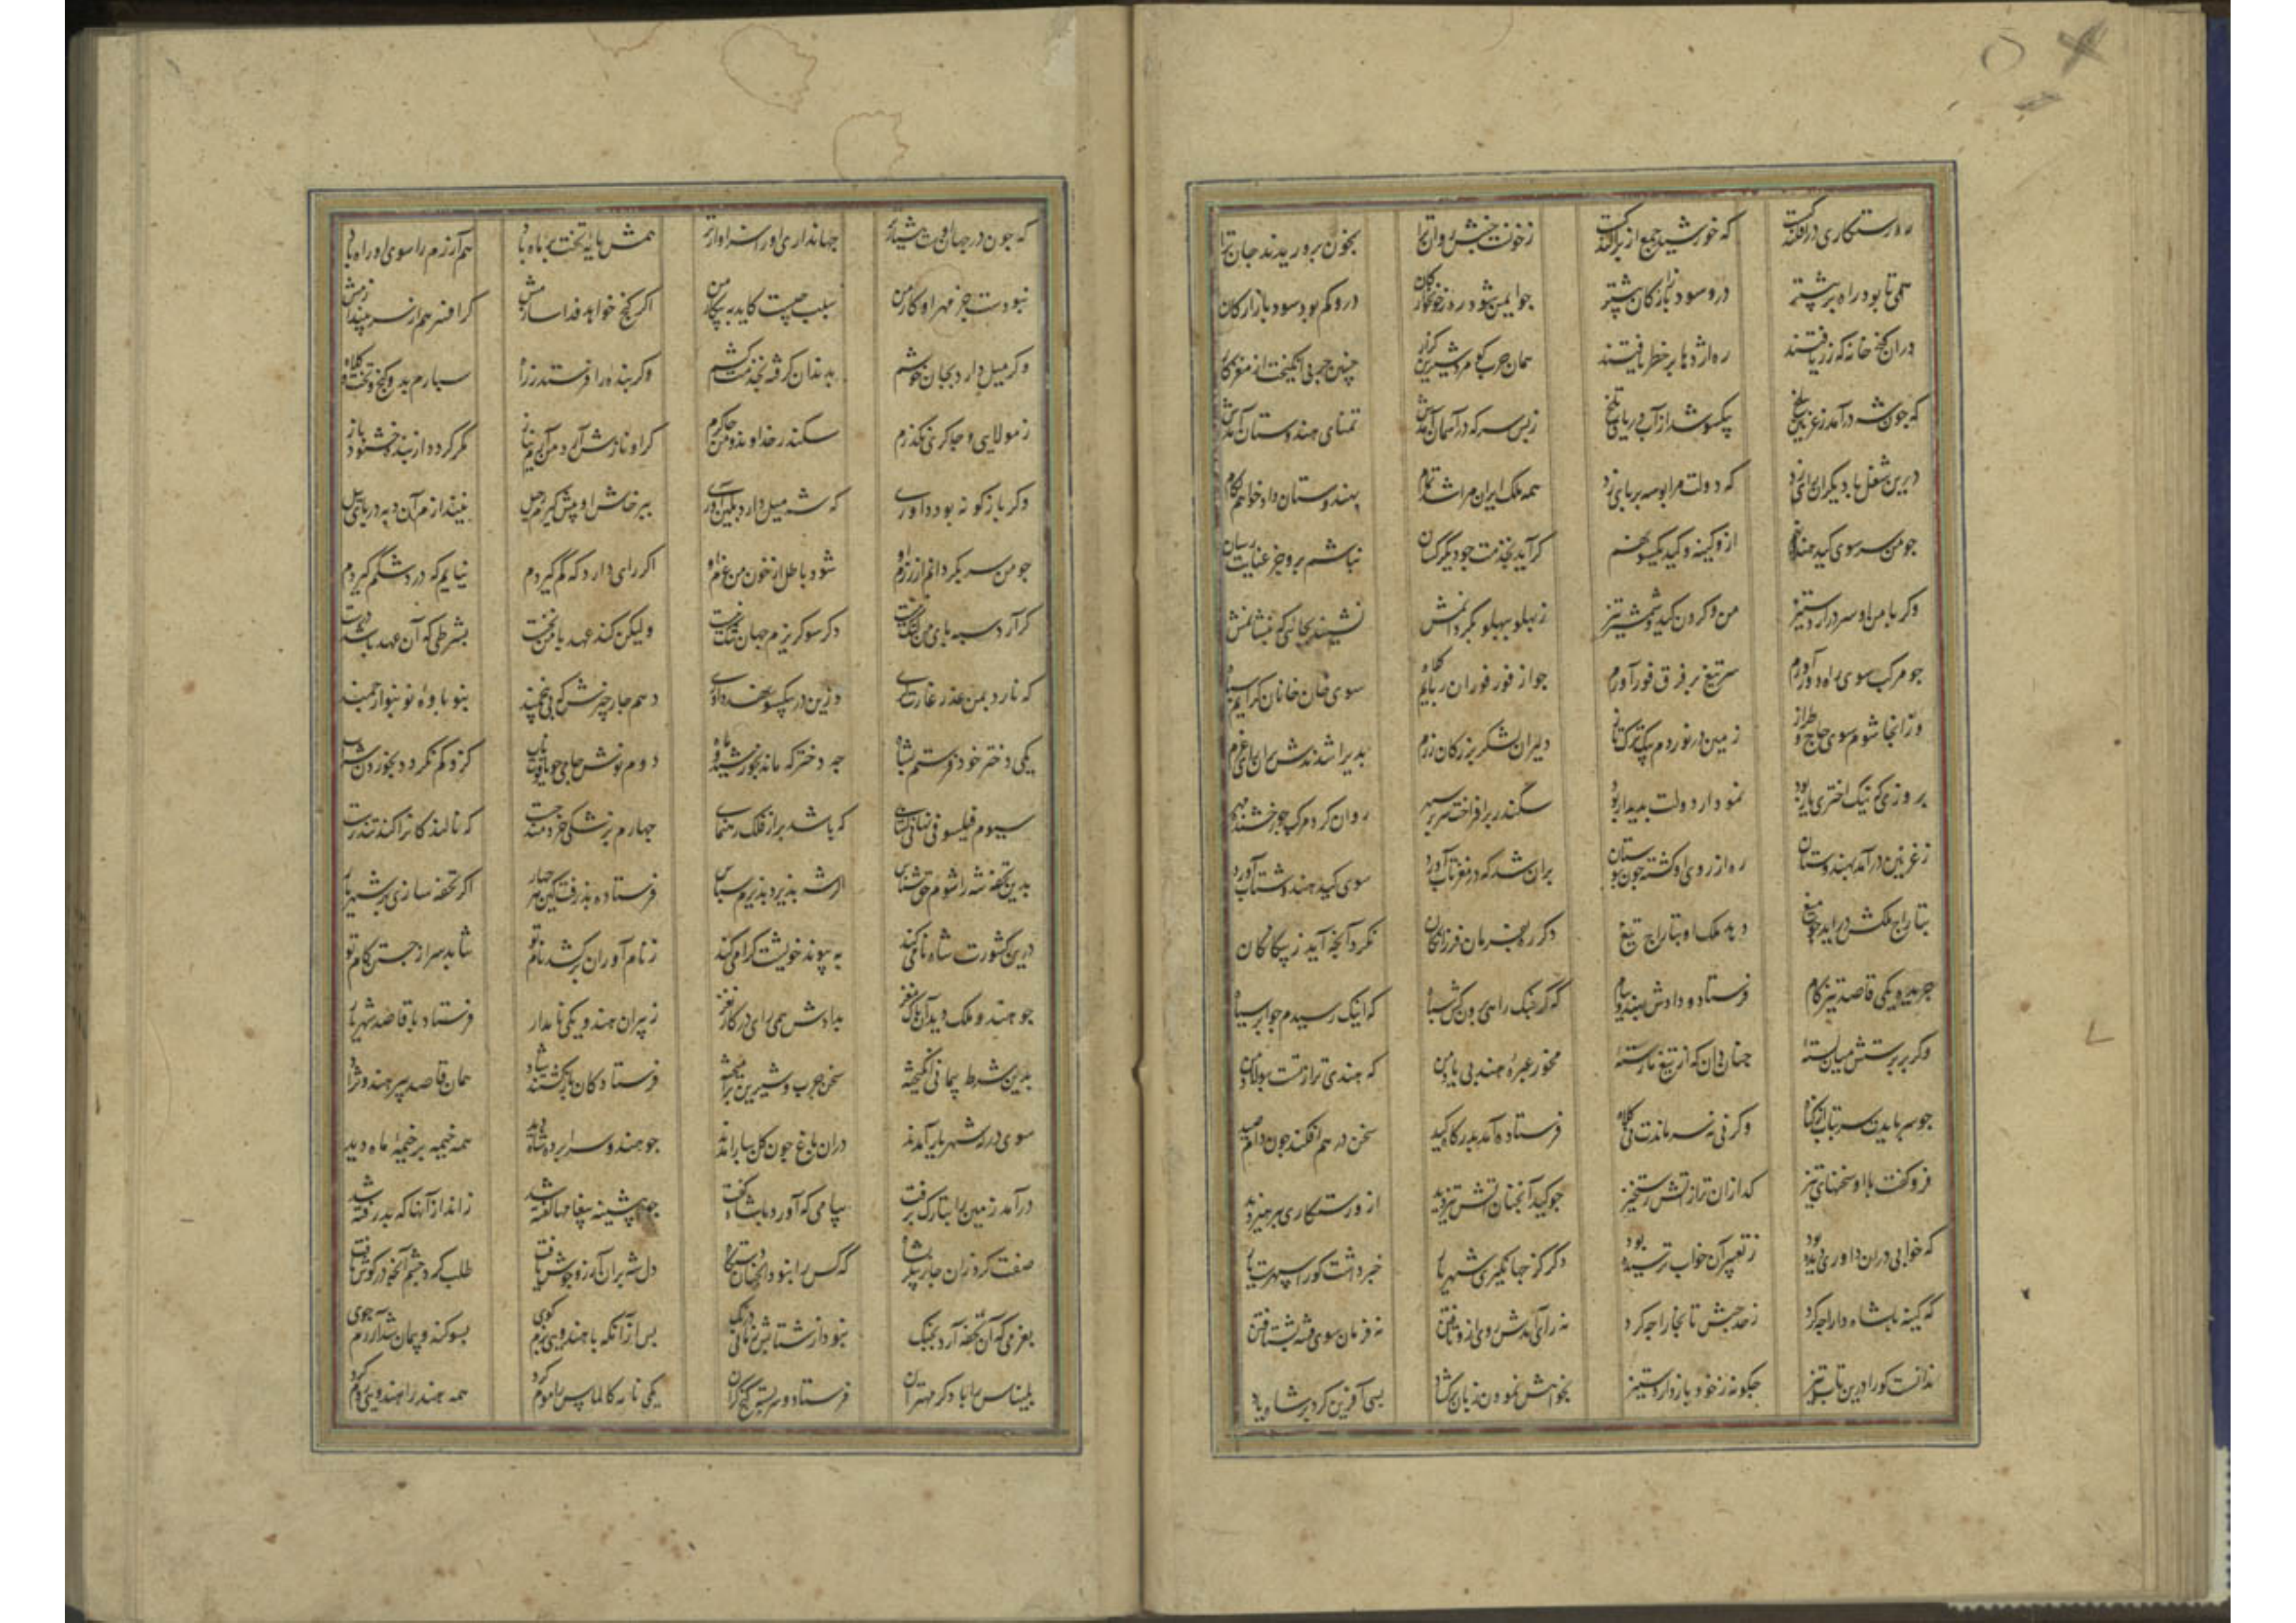 ره رستگاری در افکندگیست که خورشید جمع از پراکندگیست زخونت جنبش روان ترا بخون پروریدند جان ترا
همی تا بود راه پر بیشتر درو سود بازارگان بیشتر چو ایمن شود ره ز خونخوارکان درو کم بود سود بازارکان
دران کنج خانه که زر یافتند ره اژدها بر خطر یافتند همان چرب کو مرد شیرین کزار چنین چربی انکیخت از مغز کار
که چون شه درآمد ز غزنین ببلخ بیکسو شد از آب دریای تلخ ز بس سر که در آسمان آمدش تمنای هندوستان آمدش
درین شغل با دیکران رای زد که دولت مرا بوسه بر پای زد همه ملک ایران مرا شد تمام بهندوستان داد خواهم لکام
چو من سر سوی کید هندو نهم ازو کینه و کید یکسو نهم کر آید بخدمت چو دیکر کسان نباشم برو جز عنایت رسان
وکر با من او سر درارد ستیز من و کردن کید و شمشیر تیز ز پهلو بپهلو بکردانمش نشیند بجائی که بنشانمش
چو مرکب سوی راه دور آورم سر تیغ بر فرق فور آورم چو از فور فوران ربایم کلاه سوی خان خانان کرایم سپاه
وز آنجا شوم سوی چاچ و طراز زمین در نوردم بیک ترکتاز دلیران لشکر بزرکان رزم پذیرا شدندش بران رای عزم
بروزی که نیک اختری یار بود نمودار دولت پدیدار بود سکندر برافراخت سر بر سپهر روان کرد مرکب چو رخشنده مهر
ز غزنین درآمد بهندوستان ره از روی او کشته چون بوستان بران شد که در مغز تاب آورد سوی کید هندو شتاب آورد
بتاراج ملکش درآید چو میغ دهد ملک او بتاراج تیغ دکر ره بفرمان فرزانکان نکرد آنچه آید ز بیکانکان
جریده یکی قاصد تیزکام فرستاد و دادش بهندو پیام که کر جنک رایی برون کش سپاه که اینک رسیدم چو ابر سیاه
وکر بر پرستش میان بسته چنان دان که از تیغ ما رسته مخور عبره هند بی یاد من که هندی ترازتست پولاد من
چو سر بایدت سر متاب از کناه وکر نی نه سر ماندت نی کلاه فرستاده آمد بدرکاه کید سخن در هم افکند چون دام صید
فرو کفت با او سخنهای تیز کدازان‌تر از آتش رستخیز چو کید آنچنان آتش تیز دید ازو رستکاری بپرهیز دید
که خوابی دران داوری دیده بود ز تعبیر آن خواب ترسیده بود دکر کز جهانکیری شهریار خبر داشت کو را سپهرست یار
که کینه با شاه دارا چه کرد ز حد حبش تا بخارا چه کرد نه رای آمدش روی ازو تافتن نه فرمان سوی فتنه بشتافتن
ندانست کو را درین تاب تیز چکونه ز خود باز دارد ستیز بخواهش نمودن زبان برکشاد بسی آفرین کرد بر شاه یاد
که چون در جهان اوست هشیارتر جهانداری او را سزاوارتر همش پایه تخت بر ماه باد هم آزرم را سوی او راه باد
نبودست جز مهر او کار من سبب چیست کاید به پیکار من اکر کنج خواهد فدا سازمش کر افسر هم از سر بیندازمش
وکر میل دارد بجان خوشم بدندان کرفته بخدمت کشم وکر بنده را فرستد ز راه سپارم بدو کنج و تخت و کلاه
ز مولایی و چاکری نکذرم سکندر خداوند و من چاکرم کر او ناز پیش آرد من آرم نیاز مکر کردد از بنده خشنود باز
وکر باز کونه بود داوری که شه میل دارد بکین آوری بپرخاش او پیش کیرم رحیل نیندازم آن دبه در پای پیل
چو من سر بکردانم از رزم او شود باطل از خون من عزم او اکر رای دارد که کم کیردم نیایم که در دشت کم کیردم
کر آرد سپه پای من لنک نیست دکر سو کریزم جهان تنک نیست ولیکن کند عهد با من نخست بشرطی که آن عهد باشد درست
که نارد بمن عذر غارتکری وزین در بیکسو نهد داوری دهم چار چیزش که بی پنجمند بنو باوه نو بنوا ارجمند
یکی دختر خود فرستم بشاه چه دختر که مانند خورشید و ماه دوم نوش جامی چو یاقوت ناب کزو کم نکردد بخوردن شراب
سیوم فیلسوفی نهانی کشای که باشد بر راز فلک رهنمای چهارم پزشکی خردمند چست که نالند کانرا کند تندرست
بدین تحفه شه را شوم حق شناس اکر شه پذیرد پذیرم سپاس فرستاده پذرفت کین هر چهار اکر تحفه سازی بر شهریار
درین کشورت شاه نامی کند به پیوند خویشت کرامی کند ز نام آوران برکشد نام تو نتابد سر از جستن کام تو
چو هندو ملک دید آن پاک مغز بدادش همی رای در کار نغز ز پیران هندو یکی نامدار فرستاد با قاصد شهریار
بدین شرط پیمانی انکیخته سخن چرب و شیرین برآمیخته فرستادکان بازکشتند شاد همان قاصد پیر هندو نژاد
سوی درکه شهریار آمدند دران باغ چون کل ببار آمدند چو هندو سراپرده شاه دید همه خیمه بر خیمه ماه دید
درآمد زمین را بتارک برفت پیامی که آورد با شاه کفت چو پیشینه پیغامها کفته شد ز اندازه آنها که پذرفته شد
صفت کرد زان چار پیکر بشاه که کس را نبود آنچنان دستکاه دل شه بران آرزو جوش یافت طلب کرد چشم آنچه در کوش یافت
بعزمی که آن تحفه آرد بچنک نبود از شتابش زمانی درنک پس از آنکه با هندوی نرم کوی بسوکند و پیمان شد آزرم جوی
بلیناس را با دکر مهتران فرستاد و سربسته کنج کران یکی نامه کالماس را موم کرد همه هند را هندوی روم کرد